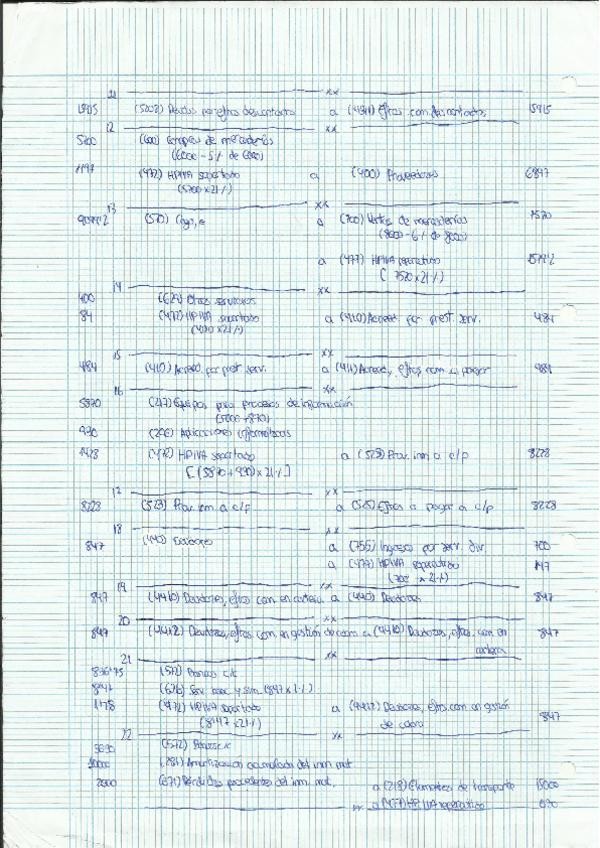 11 xx
15915 (5208) Deudas por efectos descontados a (4311) Eftos com descontados 15915
12 xx
5700 (600) Compras de mercaderías
(6000 - 5% de 6000)
1197 (472) HPIVA soportado a (400) Proveedores 6897
(5700 x 21%)
13 xx
9099'2 (570) Caja, € a (700) Ventas de mercaderías 7520
(8000 - 6% de 8000)
a (477) HPIVA repercutido 1579'2
(7520 x 21%)
14 xx
400 (629) Otros servicios
84 (472) HPIVA soportado a (410) Acreed por prest serv. 484
(400 x 21%)
15 xx
484 (410) Acreed, por prest serv. a (411) Acreed, eftos com a pagar 484
16 xx
5870 (217) Equipos para procesos de información
(5000 + 870)
930 (206) Aplicaciones informáticas
1428 (472) HPIVA soportado a (523) Prov. inm a c/p 8228
[(5870 + 930) x 21%]
17 xx
8228 (523) Prov. inm a c/p a (525) Eftos a pagar a c/p 8228
18 xx
847 (440) Deudores a (755) Ingresos por serv. div 700
a (477) HPIVA repercutido 147
(700 x 21%)
19 xx
847 (4410) Deudores, eftos com en cartera a (440) Deudores 847
20 xx
847 (4412) Deudores, eftos com en gestión de cobro a (4410) Deudores, eftos. com en 847
cartera
21 xx
836'75 (572) Bancos c/c
8'47 (626) Serv banc y sim. (847 x 1%)
1'78 (472) HPIVA soportado a (4412) Deudores, eftos com en gestión 847
(8'47 x 21%) de cobro
22 xx
3630 (572) Bancos
10000 (281) Amortización acumulada del inm mat
2000 (671) Pérdidas procedentes del inm. mat. a (218) Elementos de transporte 15000
xx a (477) HPIVA repercutido 630